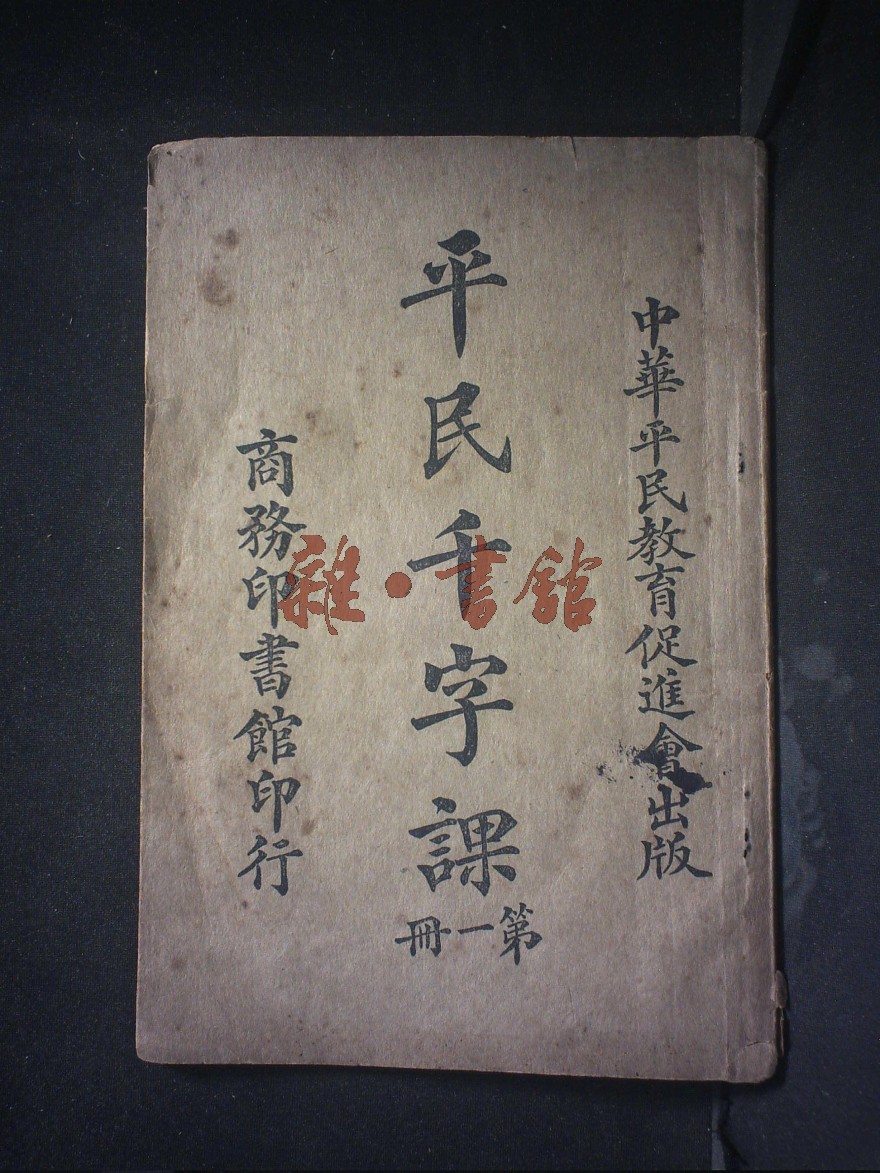 中華平民教育促進會出版
平民千字課
第一冊
商務印書館印行
雜·書館